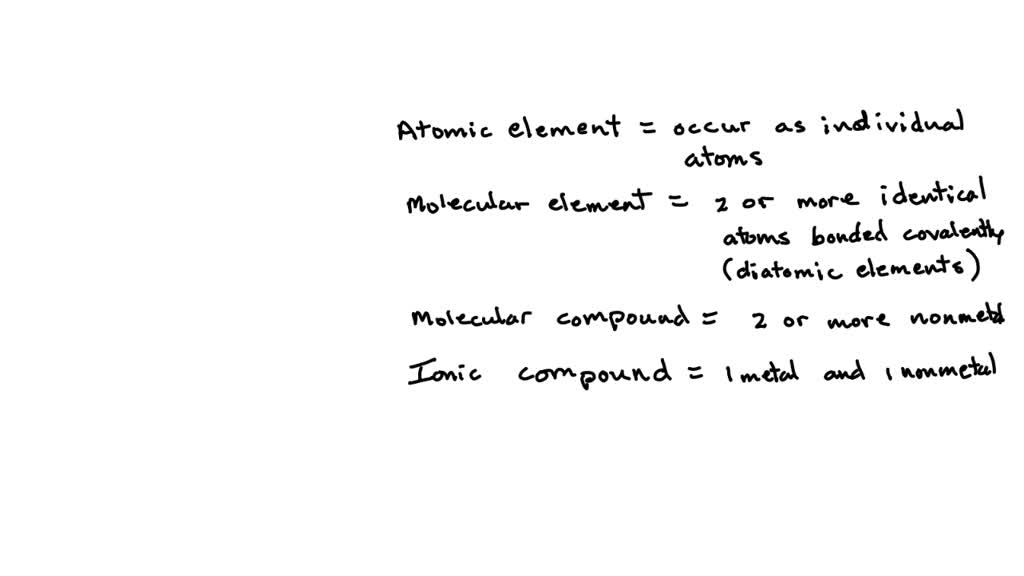 Atomic element = occur as individual
atoms
Molecular element = 2 or more identical
atoms bonded covalently
(diatomic elements)
Molecular compound = 2 or more nonmetal
Ionic compound = 1 metal and 1 nonmetal